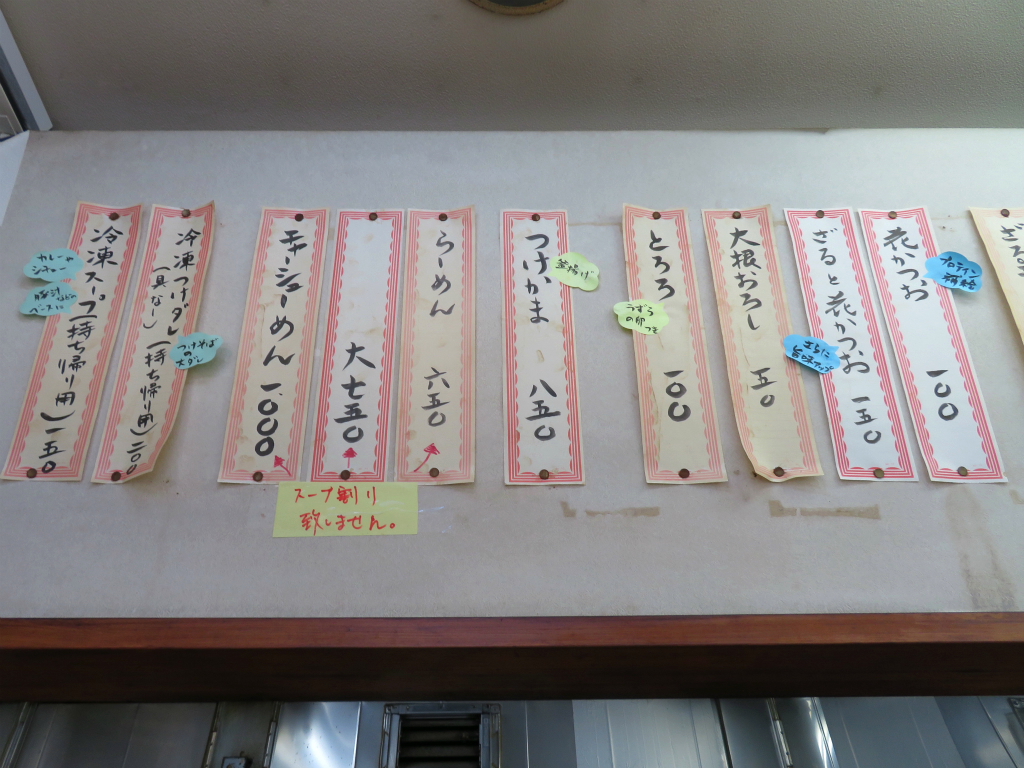 ざる
花かつお 一〇〇
ざると花かつお 一五〇
大根おろし 五〇
とろろ 一〇〇
うずら
の卵
つき
つけかま 八五〇
釜揚げ
らーめん 六五〇
大 七五〇
チャーシューめん 一〇〇〇
スープ割り
致しません。
冷凍つけダレ(持ち帰り用)二〇〇
(具なし)
つけそば
の
冷凍スープ(持ち帰り用)一五〇
カレーや
シチュー
ベースに